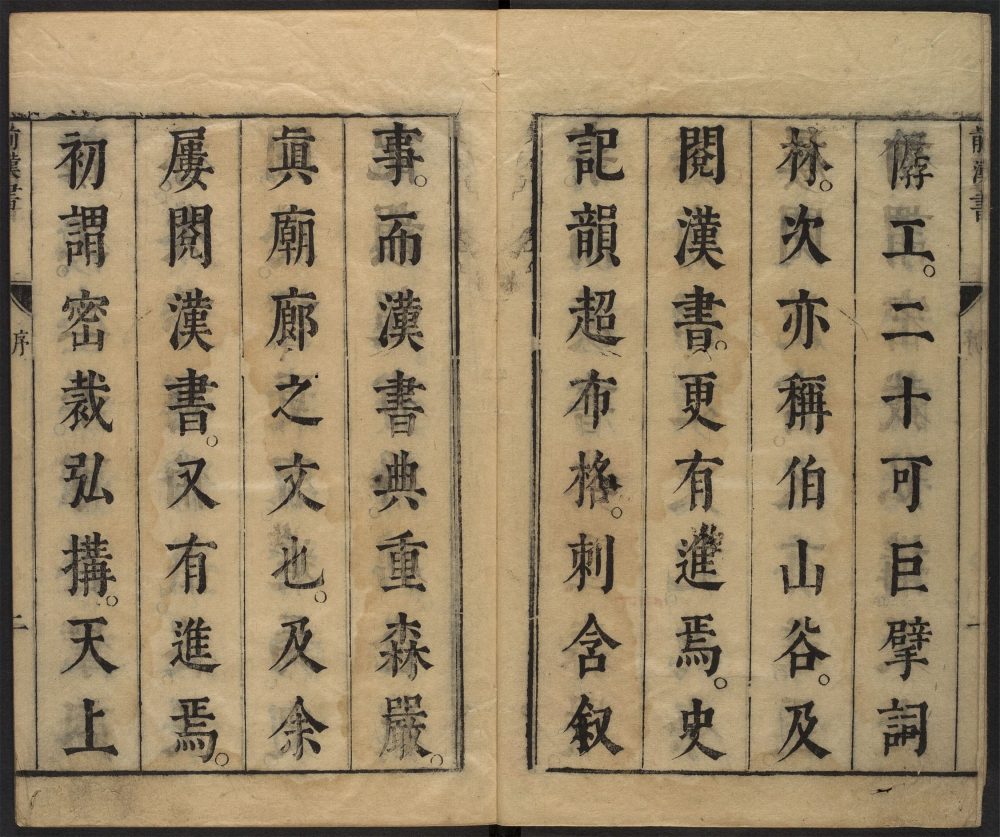 前漢書
一
僝工。二十可巨擘詞
林。次亦稱伯山谷。及
閱漢書。更有進焉。史
記韻超布格。刺含叙
事。而漢書典重森嚴。
眞廟廊之文也。及余
屢閱漢書。又有進焉。
初謂密裁弘搆。天上
前漢書
序
二